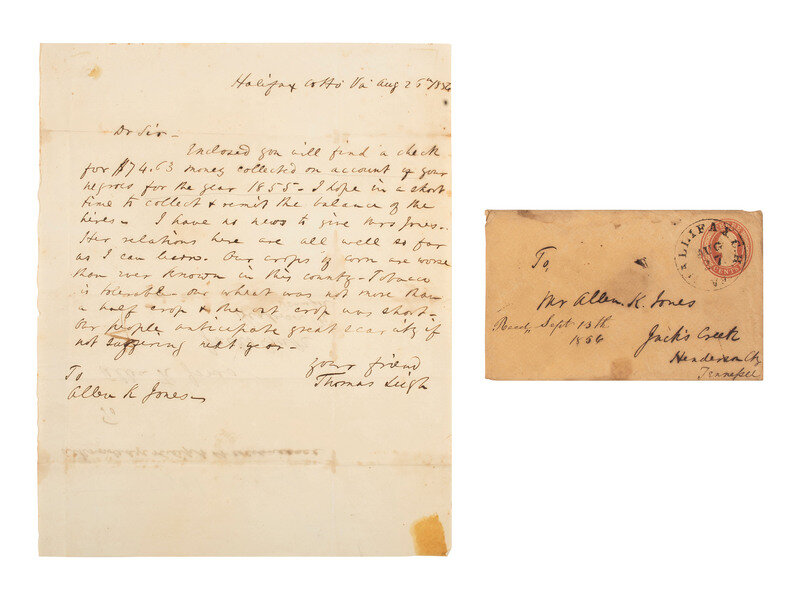 Halifax CtHo Va Aug 25th 1856
Dr Sir -
Enclosed you will find a check
for $74.63 money collected on account of your
negroes for the year 1855 - I hope in a short
time to collect & remit the balance of the
hires - I have no news to give Mrs Jones -
Her relations here are all well as far
as I can learn. Our crops of corn are worse
than ever known in this county - Tobacco
is tolerable - our wheat was not more than
a half crop & the oat crop was short -
Our people anticipate great scarcity if
not suffering next year -
Yours friend
Thomas Leigh
To
Allen K Jones -
HALLIFAX C.H.
AUG
To,
Mr Allen K. Jones
Recd, Sept 13th
1856
Jack's Creek
Henderson Cty
Tennessee